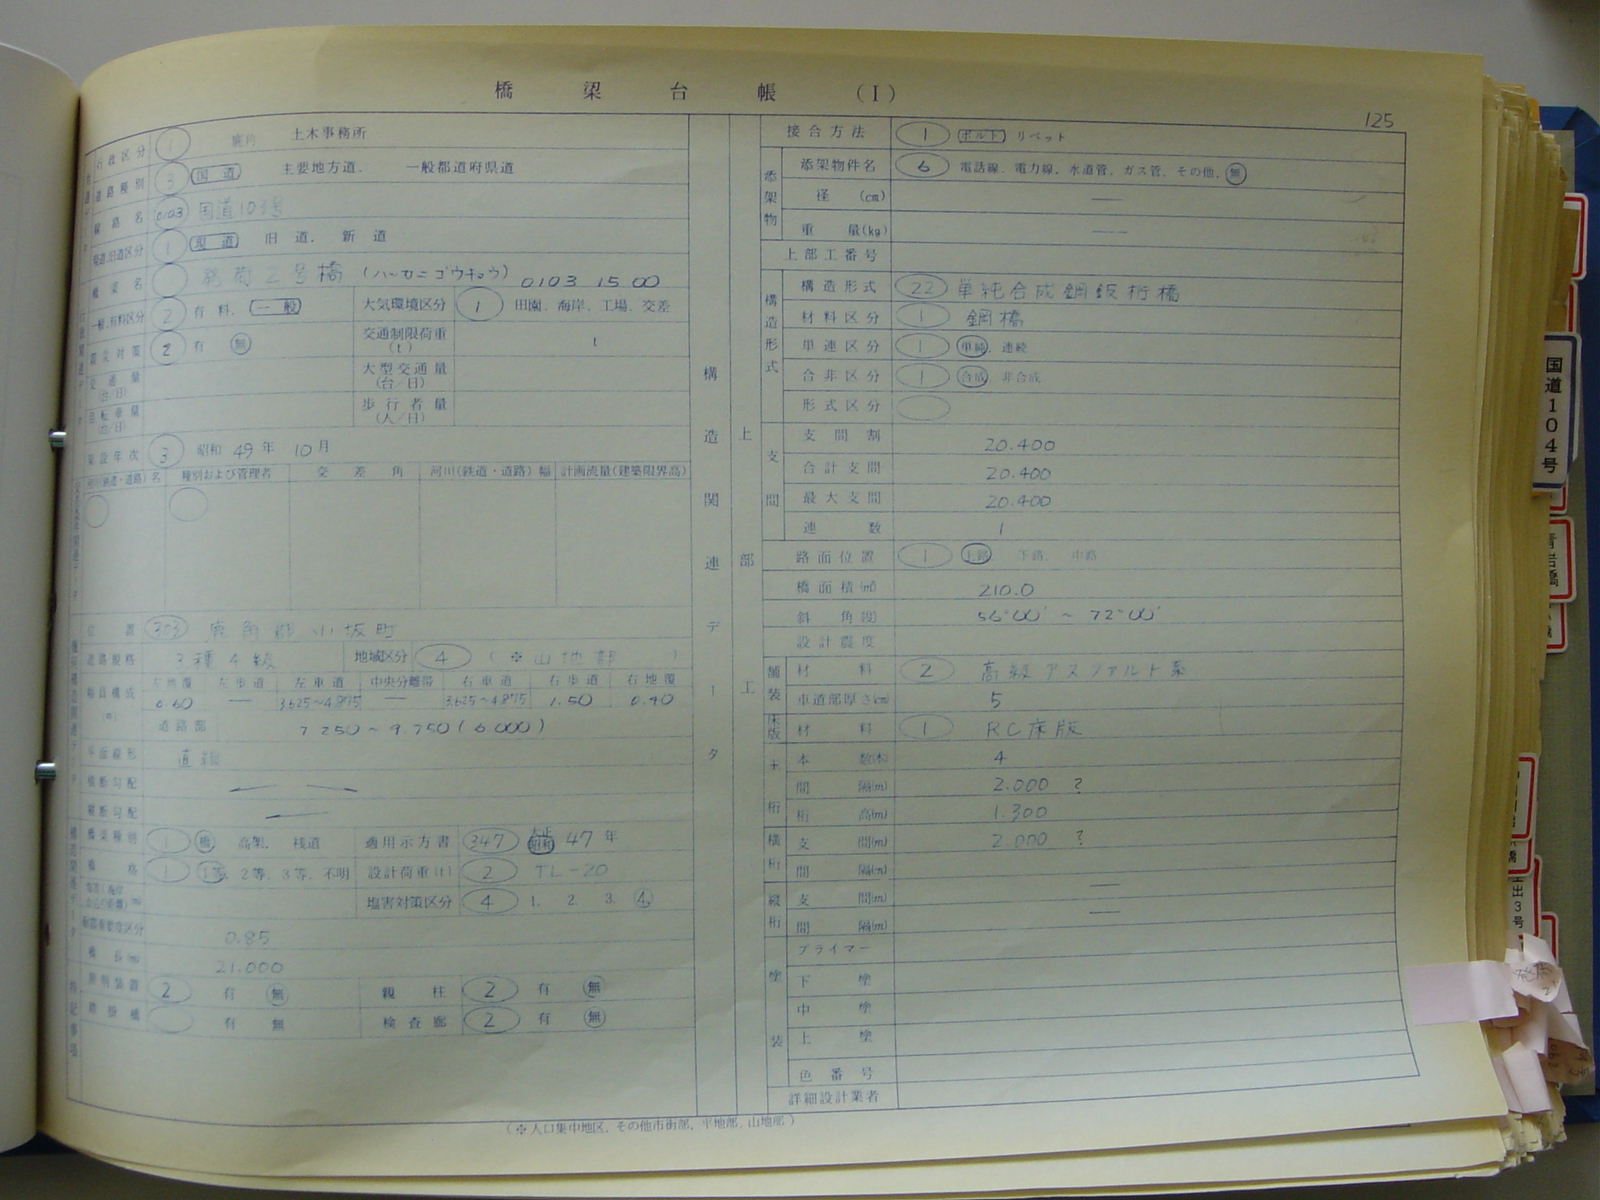 橋梁台帳（Ⅰ）
125
行政区分 1 鹿角 土木事務所
道路種別 3 国道 主要地方道. 一般都道府県道
路線名 0103 国道103号
現道旧道区分 1 現道 旧道. 新道
橋梁名 2号橋 0103 1500
一般,有料区分 2 有料. 一般 大気環境区分 1 田園、海岸、工場、交差
震災対策 2 有 無 交通制限荷重(t) t
交通量(台/日) 大型交通量(台/日)
自転車量(台/日) 歩行者量(人/日)
架設年次 3 昭和 49年 10月
河川(鉄道・道路)名 種別および管理者 交差角 河川(鉄道・道路)幅 計画流量(建築限界高)
位置 303 鹿角郡小坂町
道路規格 3種4級 地域区分 4 (※山地部)
幅員構成(m) 左地覆 左歩道 左車道 中央分離帯 右車道 右歩道 右地覆
0.60 — 3.625~4.875 — 3.625~4.875 1.50 0.40
道路部 7.250~9.750(6.000)
平面線形 直線
横断勾配
縦断勾配
橋梁種別 1 橋 高架. 桟道 適用示方書 347 大正 昭和 47年
橋格 1 1等 2等. 3等. 不明 設計荷重(t) 2 TL-20
塩害対策区分 4 1. 2. 3. 4
0.85
橋長(m) 21.000
照明装置 2 有 無 親柱 2 有 無
有 無 検査廊 2 有 無
特記事項
(※人口集中地区, その他市街部, 平地部, 山地部)
構造関連データ
上部工
接合方法 1 ボルト リベット
添架物 添架物件名 6 電話線、電力線、水道管、ガス管、その他、無
径(cm) —
重量(kg) —
上部工番号
構造形式 構造形式 22 単純合成鋼鈑桁橋
材料区分 1 鋼橋
単連区分 1 単純. 連続
合非区分 1 合成. 非合成
形式区分
支間 支間割 20.400
合計支間 20.400
最大支間 20.400
連数 1
路面位置 1 上路 下路 中路
橋面積(㎡) 210.0
斜角(度) 56°00′~72°00′
設計震度
舗装 材料 2 高級アスファルト系
車道部厚さ(cm) 5
床版 材料 1 RC床版
主桁 本数(本) 4
間隔(m) 2.000 ?
桁高(m) 1.300
横桁 支間(m) 2.000 ?
間隔(m)
縦桁 支間(m) —
間隔(m) —
塗装 プライマー
下塗
中塗
上塗
色番号
詳細設計業者
国道104号